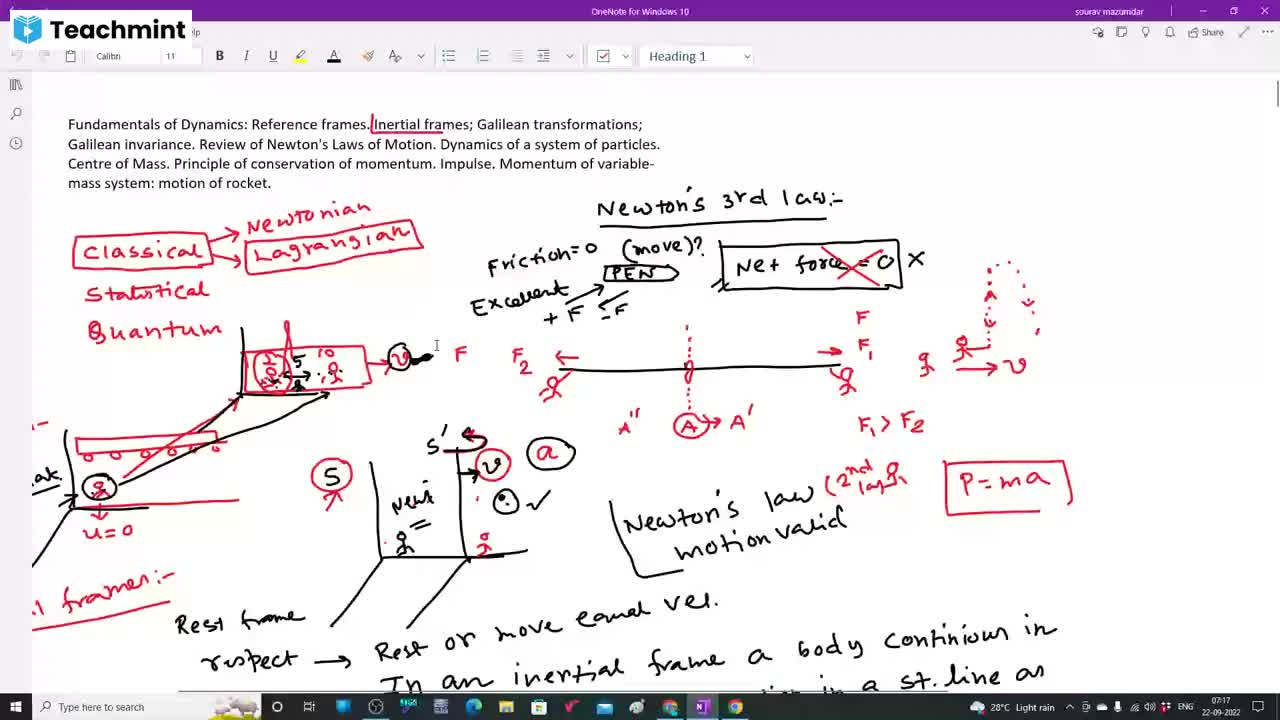 OneNote for Windows 10
sourav mazumdar
Teachmint
Calibri 11 B I U A Heading 1
Share
Fundamentals of Dynamics: Reference frames. Inertial frames; Galilean transformations;
Galilean invariance. Review of Newton's Laws of Motion. Dynamics of a system of particles.
Centre of Mass. Principle of conservation of momentum. Impulse. Momentum of variable-
mass system: motion of rocket.
Newton's 3rd law:-
Newtonian
Classical
Lagrangian
Statistical
Quantum
Friction=0 (move)?
PEN
Net force = 0 ×
Excellent
+F -F
F
F F2 F1
A
v
5 10
v
A" A A'
F1 > F2
S S' v a
u=0
Newton's law (2nd law
motion valid
P=ma
frames:-
Rest frame
respect → Rest or move equal vel.
In an inertial frame a body continious in
in a st. line as
Type here to search
28°C Light rain
ENG
07:17
22-09-2022